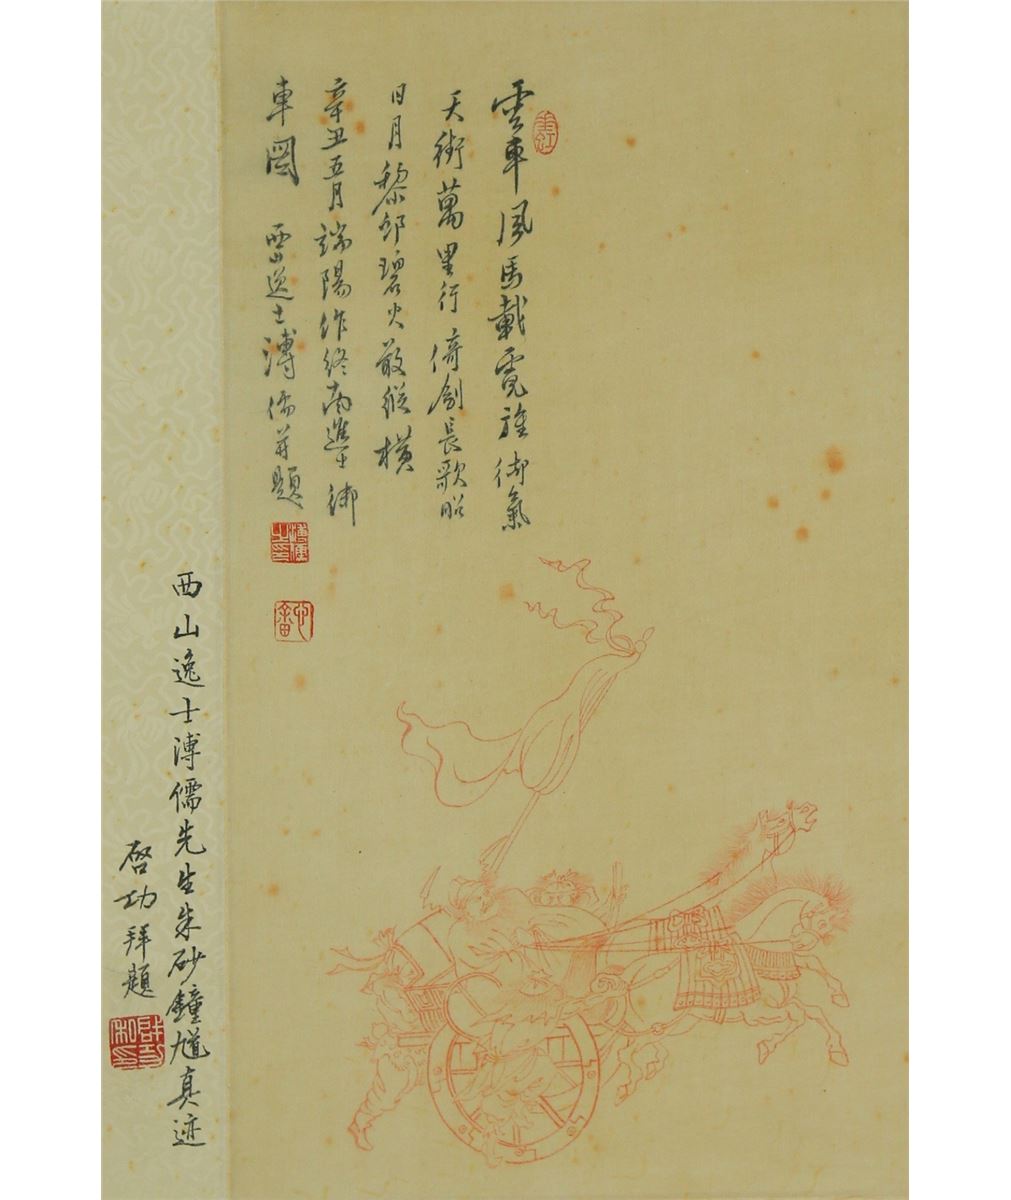 雲車風馬載霓旌御氣
天衢萬里行倚劍長歌昭
日月黎邱碧火敢縱橫
辛丑五月端陽作終南進士御
車圖 西山逸士溥儒并題
溥儒之印
西山逸士溥儒先生朱砂鐘馗真迹
啓功拜題